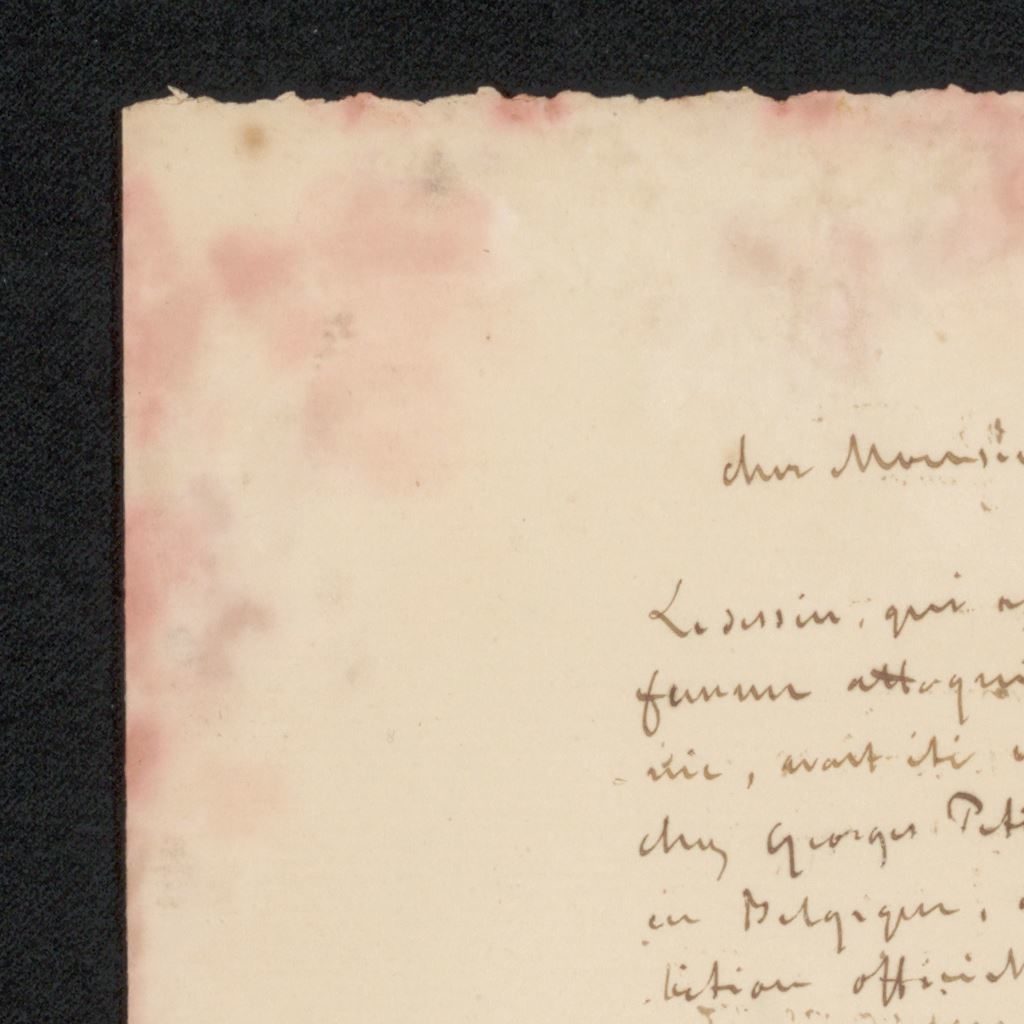 cher Monsie
Le dessin, qui
femme attaqu
nie, avait été
chez Georges Peti
en Belgique,
bition officiel